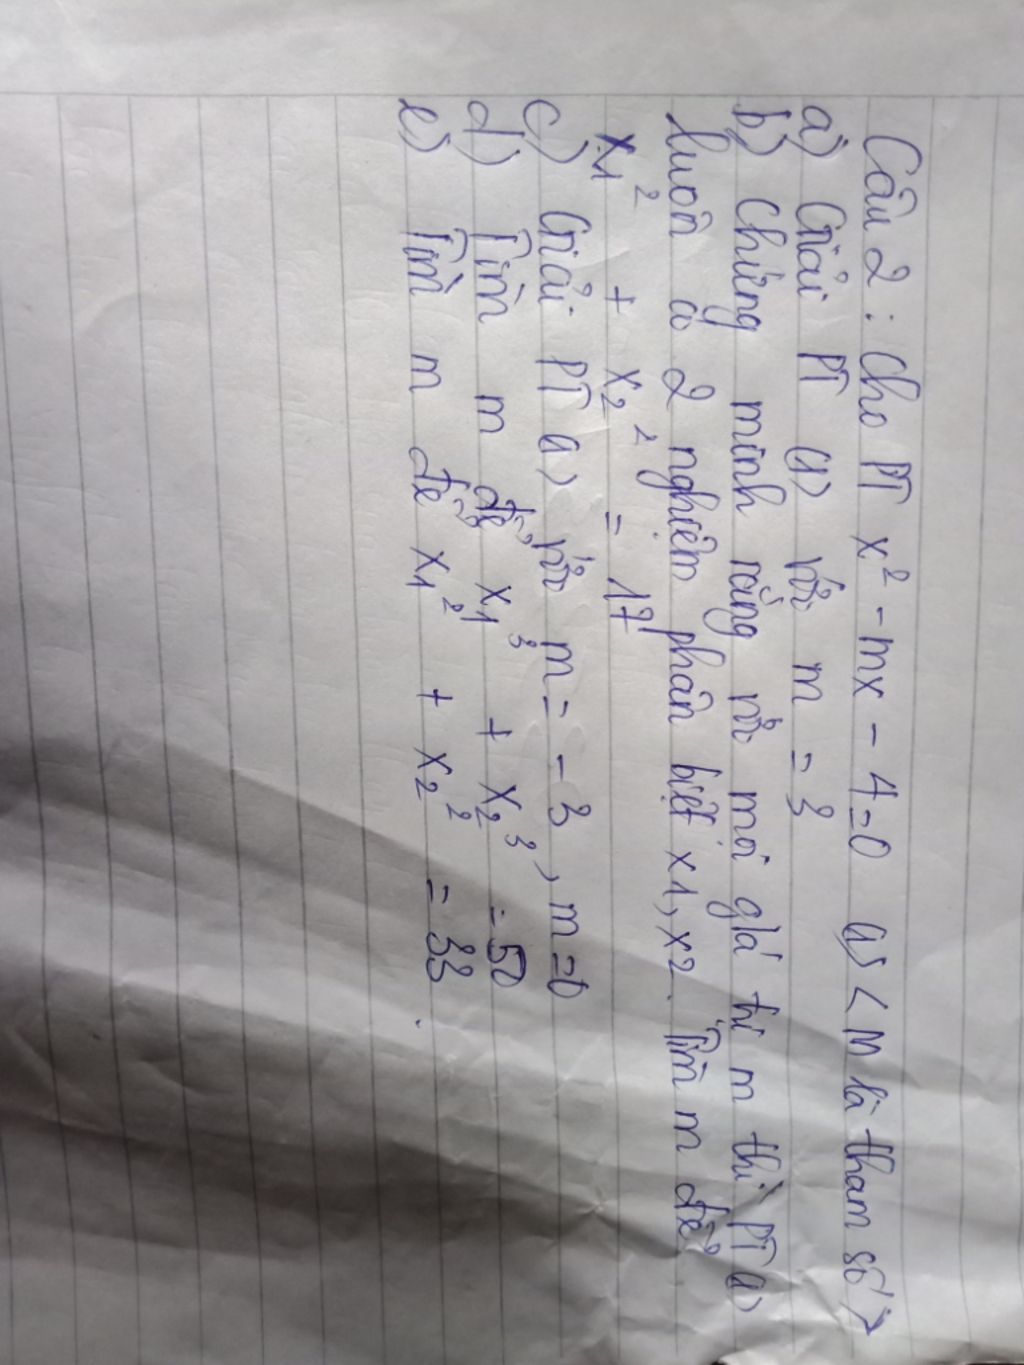 Câu 2: Cho PT x² - mx - 4 = 0 (1) < m là tham số >
a) Giải PT (1) với m = 3
b) Chứng minh rằng với mọi giá trị m thì PT (1)
luôn có 2 nghiệm phân biệt x1, x2. Tìm m để
x₁² + x₂² = 17
c) Giải PT (1) với m = - 3, m = 0
d) Tìm m để x₁³ + x₂³ = 50
e) Tìm m để x₁² + x₂² = 33.